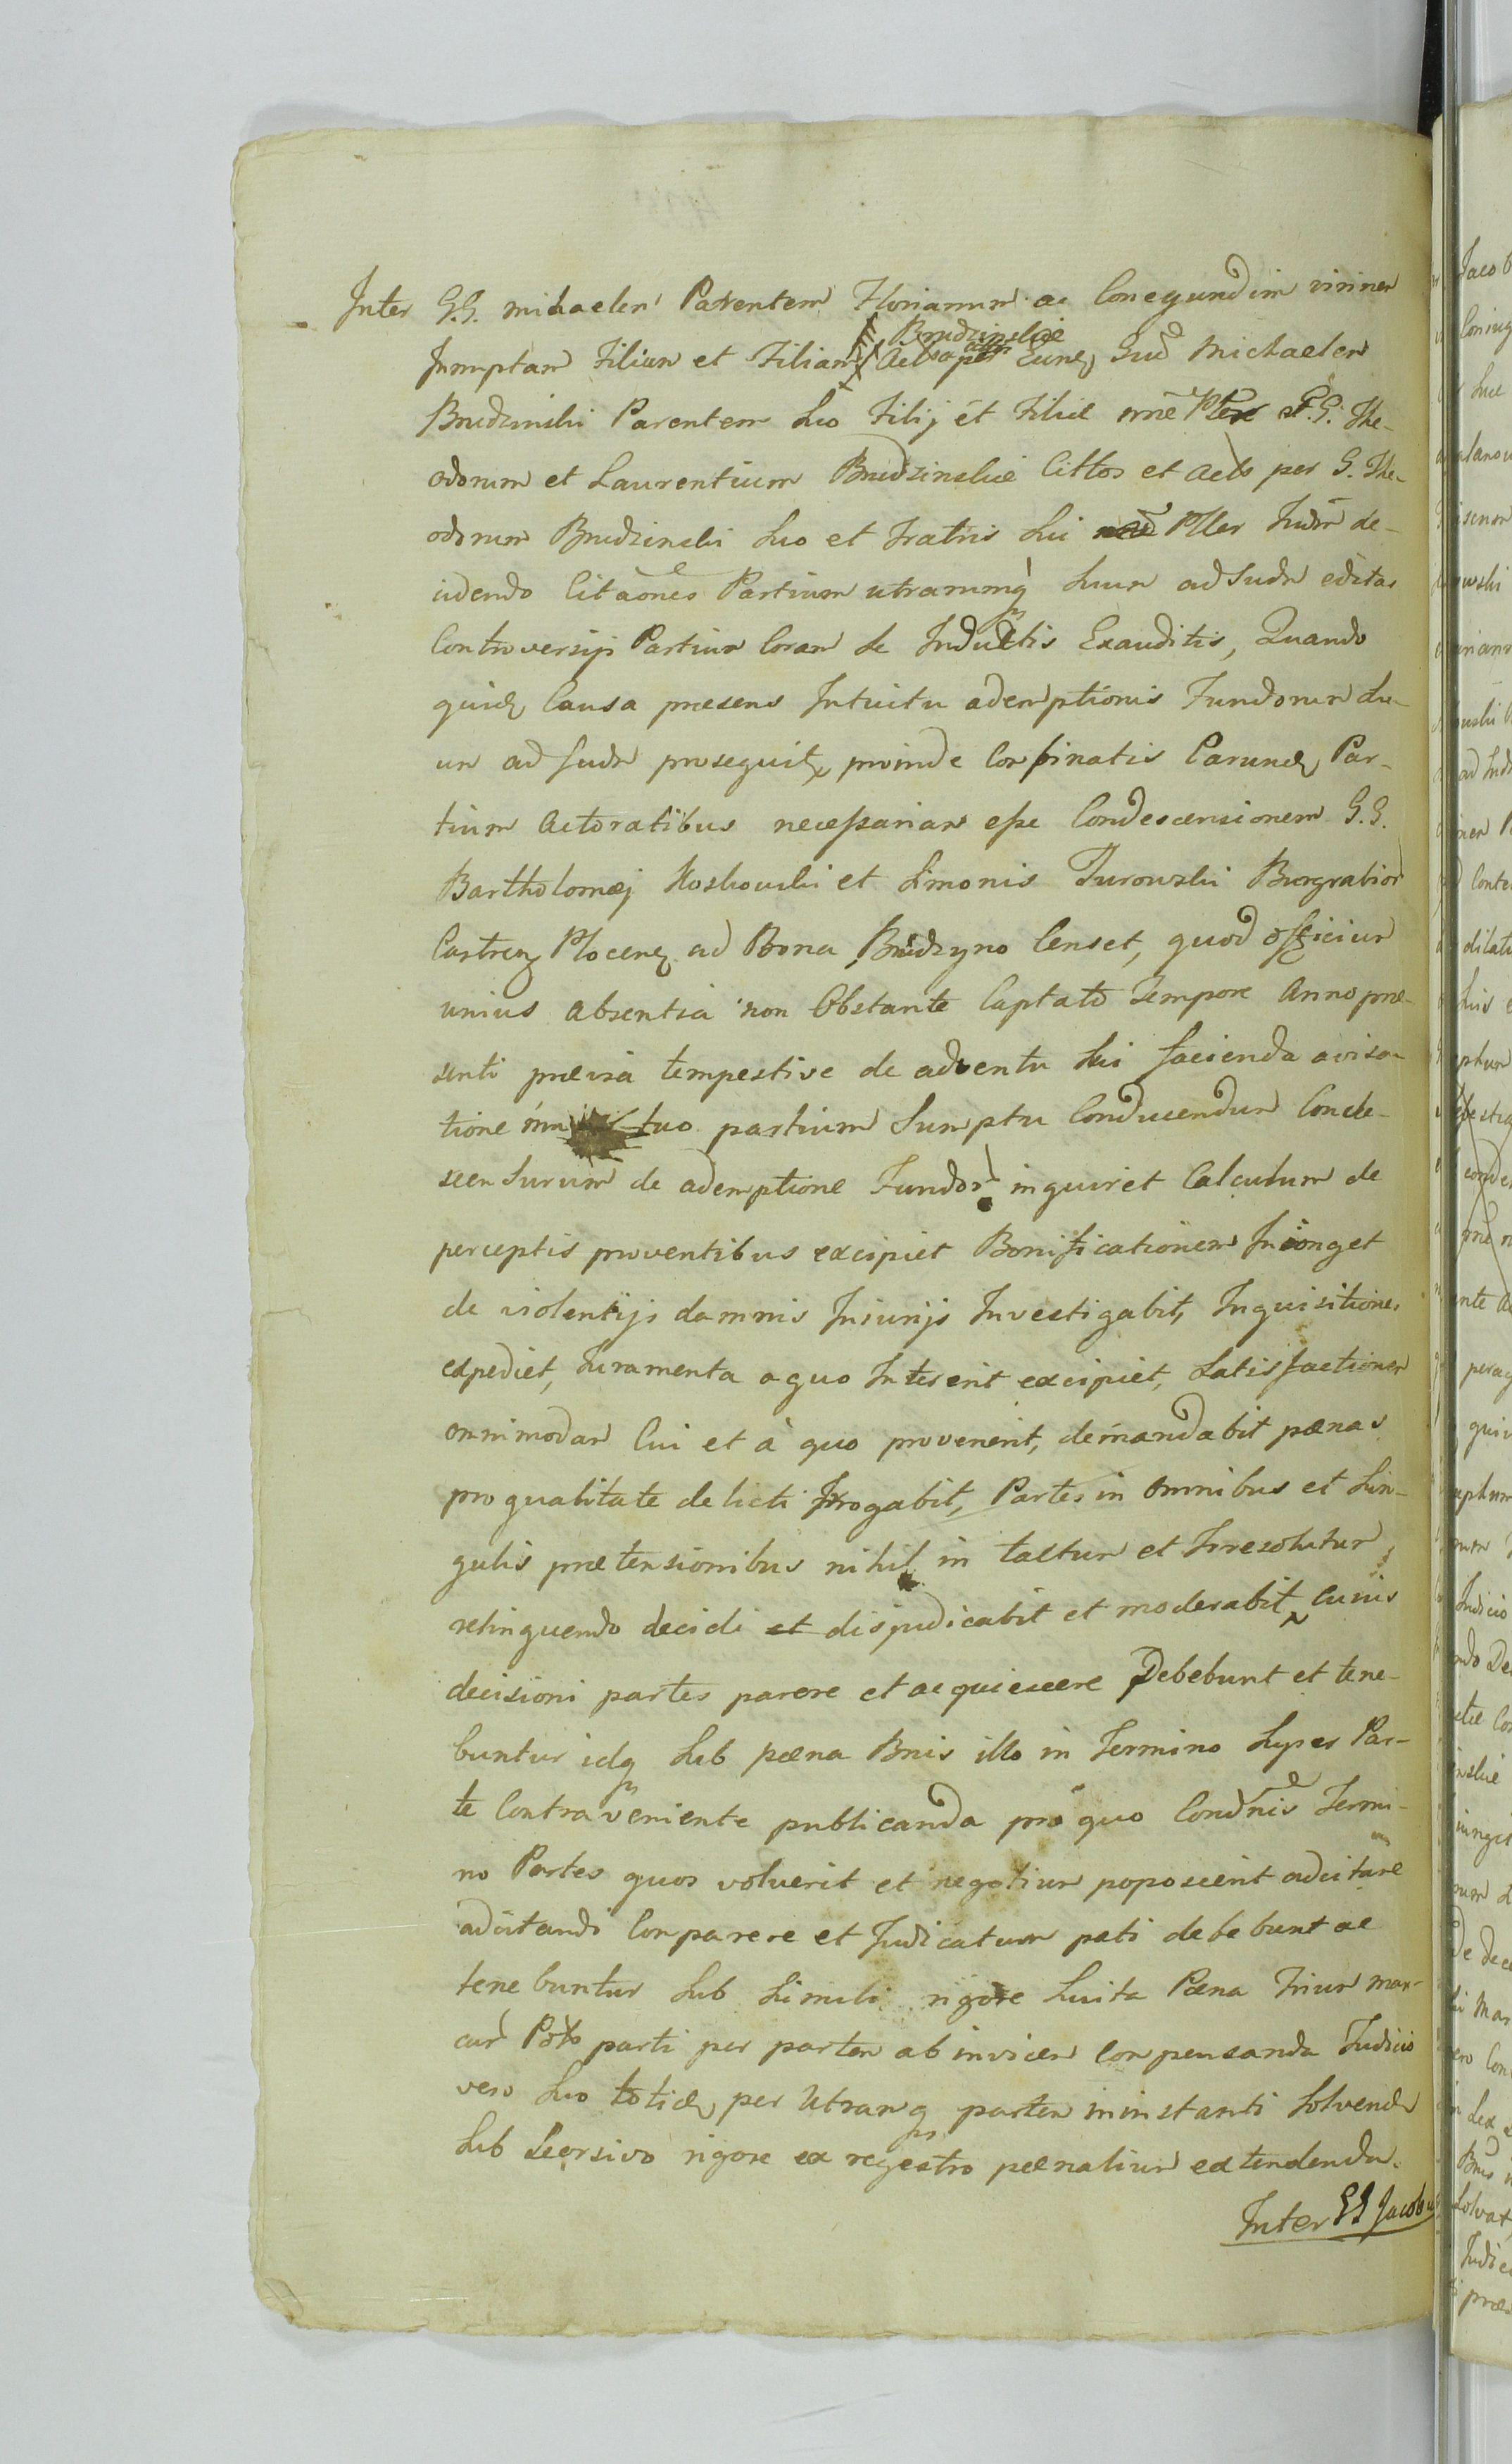 Inter G.G. Michaelem Parentem Florianum ac Conegundim vivinem
Jumptam Filium et Filiam Budzinskie
Actos per Eundem Gud Michaelem
Budzinski Parentem suo Filij et Filiae mne Pttores et G.G. The-
odorum et Laurentium Budzinskie Cittos et Actos per G. The-
odorum Budzinski suo et Fratris sui Ptter Judm de-
cidendo Citaones Partium utrarumq suum ad Judm editas
Controversijs Partium Coram se Inductis Exauditis, Quando
quidem Causa praesens Intuitu ademptionis Fundorum su-
um ad Judm prosequitur, proinde Conbinatis Earundem Par-
tium Actoratibus necessariam esse Condescensionem G.G.
Bartholomaej Koskowski et Simonis Turowski Burgrabior
Castren Plocen ad Bona Budzyno Censet, quod officium
unius absentia non Obstante Captato Tempore Anno prae-
senti praevia tempestive de adventu sui facienda avisa-
tione tuo partium Sumptu Conducendum Conde-
scensurum de ademptione Fundor inquiret Calculum de
perceptis proventibus excipiet Bonificationem Injunget
de violentijs damnis Injurijs Investigabit, Inquisitiones
expediet, Juramenta a quo Intererit excipiet, Satisfactionem
omnimodam Cui et à quo provenerit, demandabit paenas
pro qualitate delicti Irrogabit, Partes in omnibus et Sin-
gulis praetensionibus nihil in tactum et Irresolutum
relinquendo decidi et disjudicabit et moderabit, Cuius
decisioni partes parere et acquiescere Debebunt et tene-
buntur idq sub paena Bnis illo in Termino super Par-
te Contraveniente publicanda pro quo Condnis Termi-
no Partes quos voluerit et negotium poposcerit adcitare
adcitandi Comparere et Judicatum pati debebunt ac
tenebuntur sub simili rigore Luita Paena Trium mar-
car Polo parti per partem ab invicem compensanda Judicio
vero suo totidem per Utramq partem in instanti solvenda
sub Seorsivo rigore ex regestro paenalium extendenda.
Inter GG Jacobu